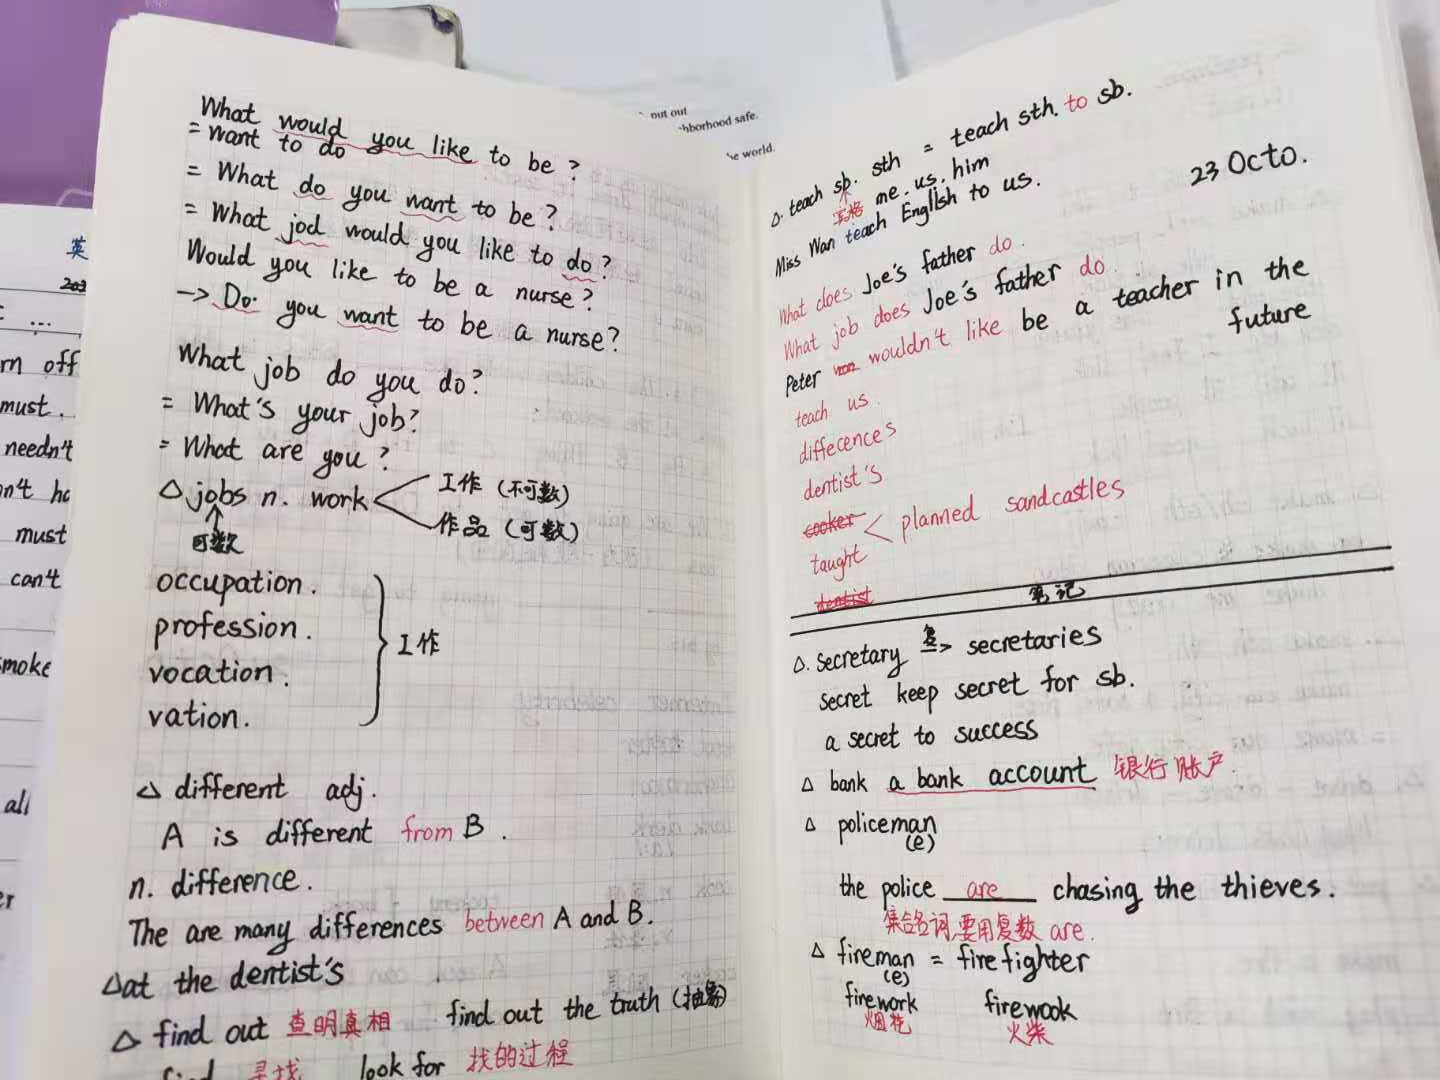 out out
hborhood safe.
he world.
英
rn off
must.
needn't
must
can't
smoke
all
What would you like to be?
= want to do
= What do you want to be?
= What jod would you like to do?
Would you like to be a nurse?
→ Do you want to be a nurse?
What job do you do?
= What's your job?
= What are you?
△ jobs n. work 工作 (不可数)
作品 (可数)
可数
occupation.
profession.
vocation.
vation.
工作
△ different adj.
A is different from B.
n. difference.
The are many differences between A and B.
△at the dentist's
△ find out 查明真相 find out the truth (抽象)
find 寻找 look for 找的过程
△. teach sb. sth = teach sth. to sb.
宾格 me. us. him
Miss Wan teach English to us.
23 Octo.
What does Joe's father do.
What job does Joe's father do
Peter wouldn't like be a teacher in the
future
teach us.
diffecences
dentist's
cooker planned sandcastles
taught
dentist
笔记
△. secretary 复=> secretaries
secret keep secret for sb.
a secret to success
△ bank a bank account 银行账户.
△ policeman
(e)
the police are chasing the thieves.
集合名词,要用复数 are.
△ fireman = firefighter
(e)
firework firewook
烟花 火柴